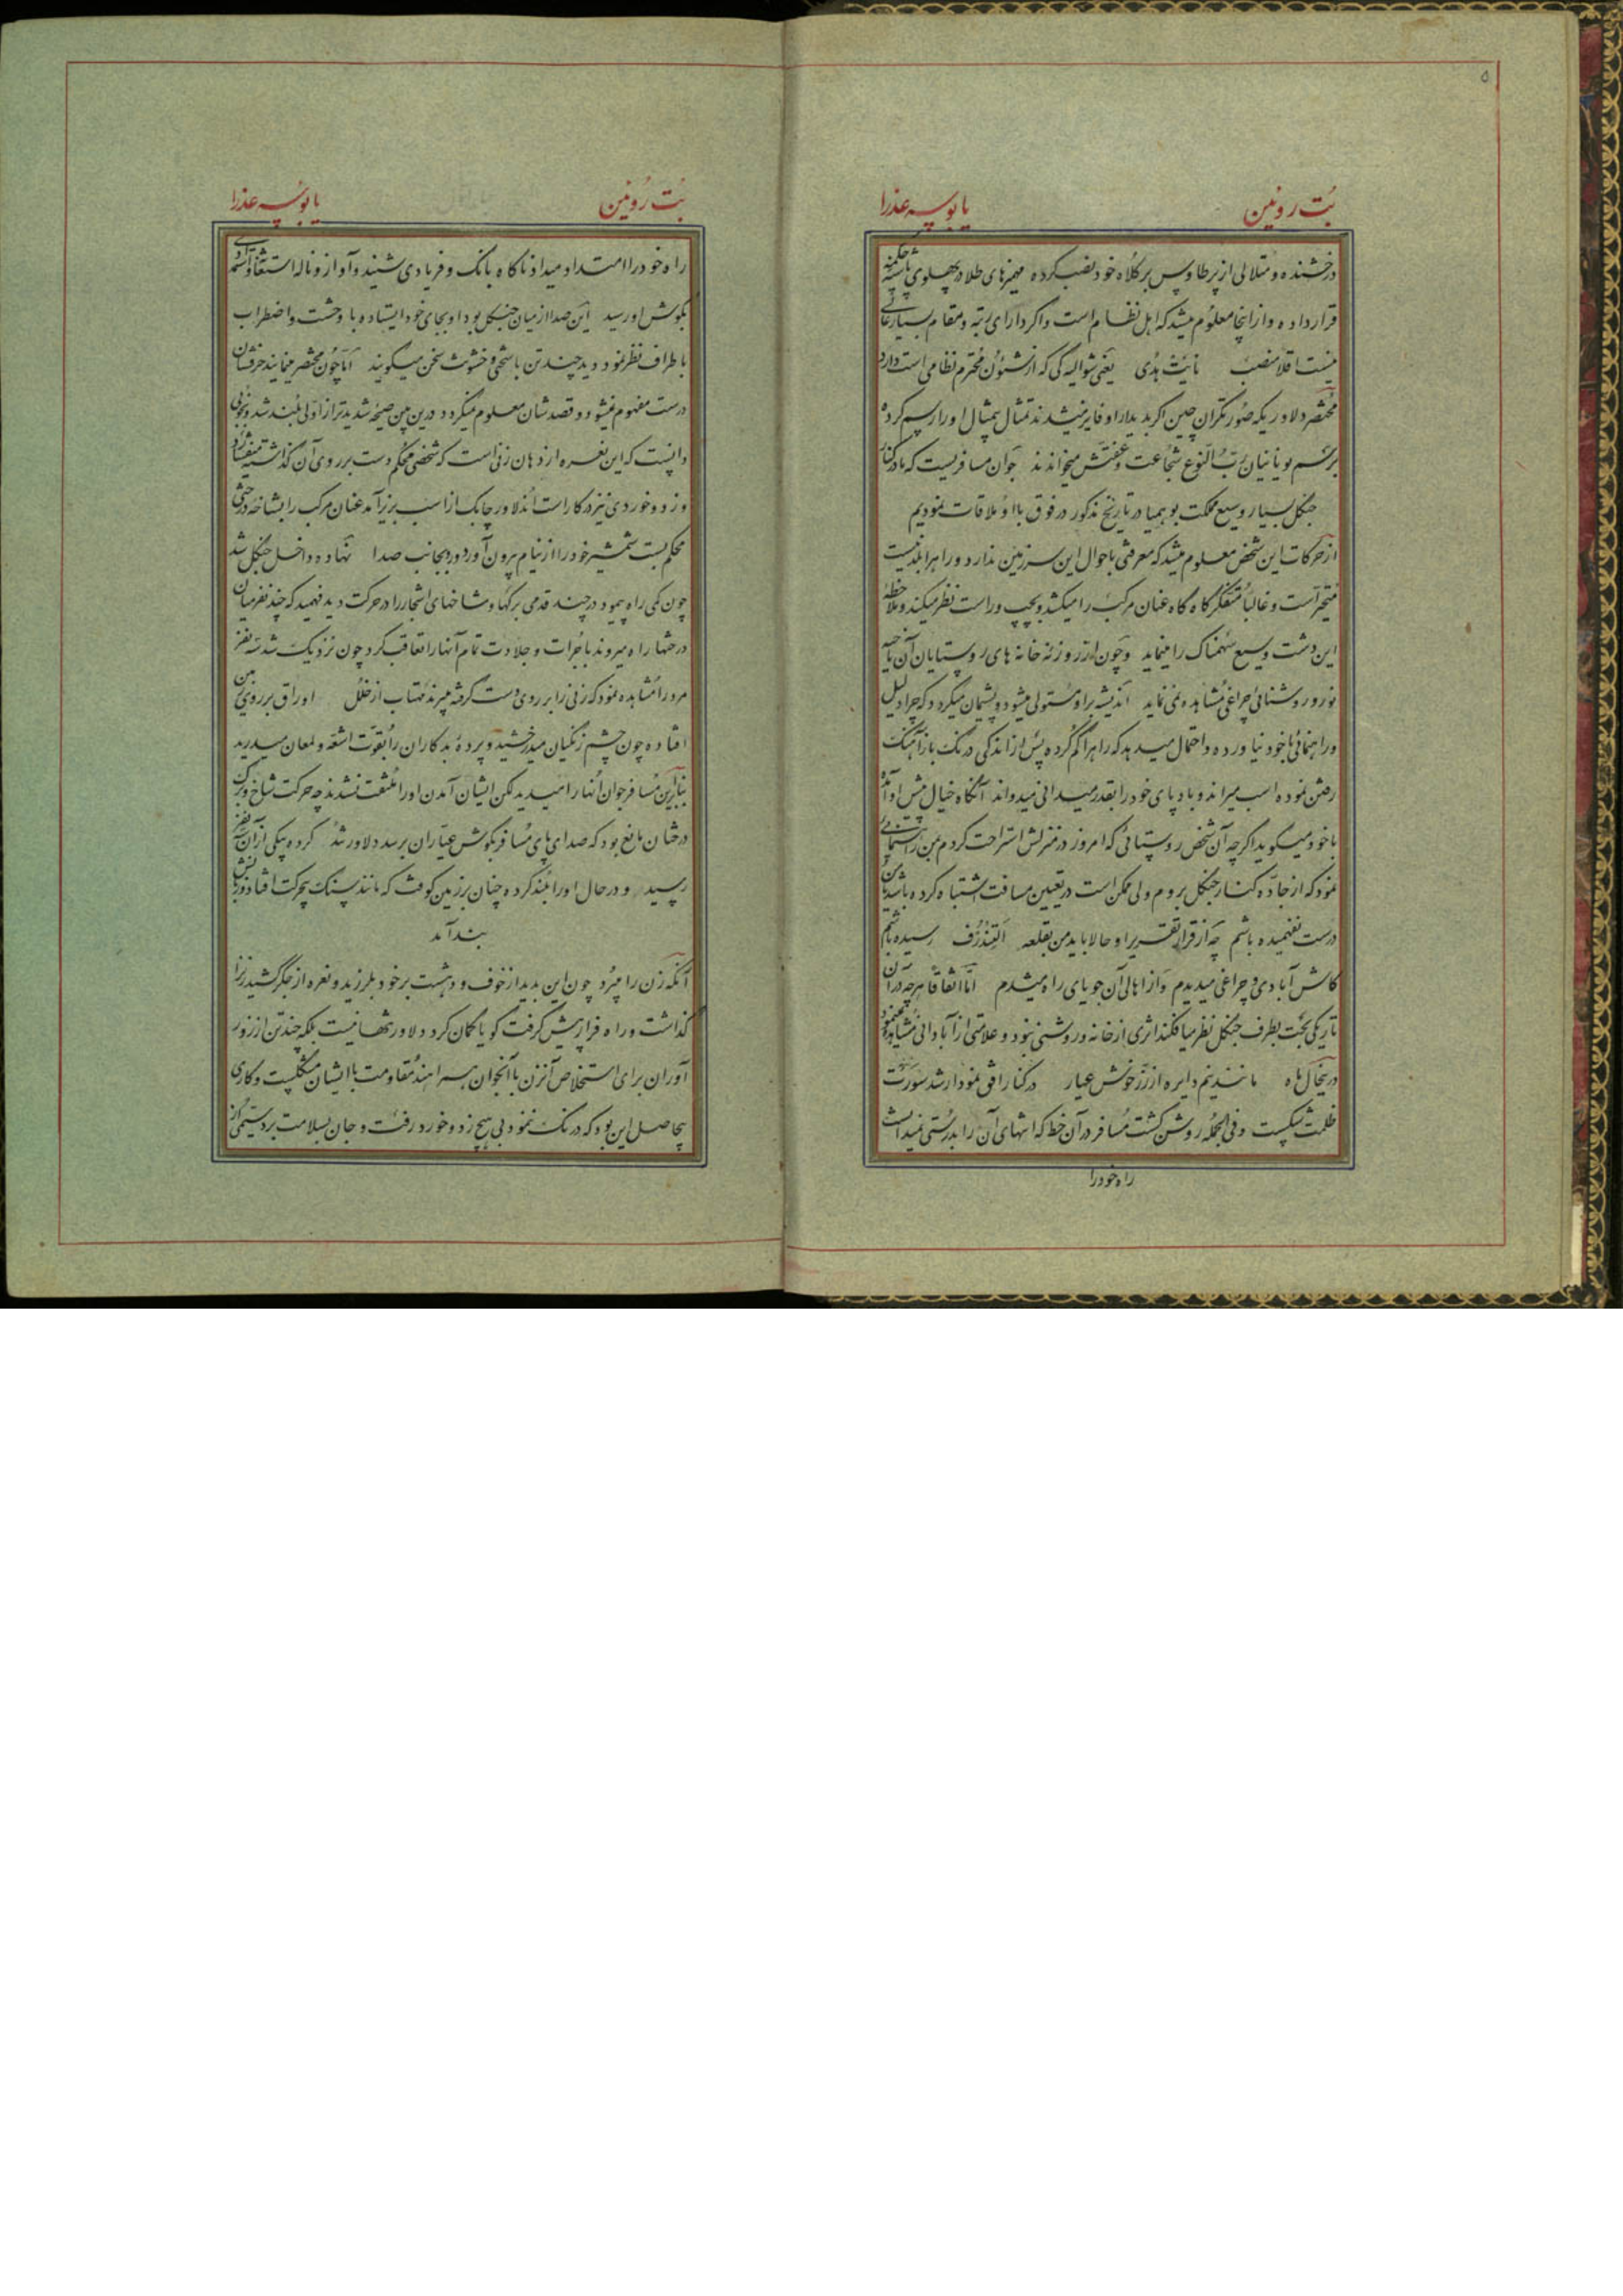 ۵
بُت رومین
یا بوسه عذرا
درخشنده و متلالی از پر طاوس بر کلاه خود نصب کرده مهمیزهای طلا در پهلوی پاشنه چکمه
قرار داده و از اینجا معلوم میشد که اهل نظام است و اگر دارای رتبه و مقام بسیار عالی
نیست اقلا منصب نایت هدی یعنی شوالیه گی که از شئون محترم نظامی است دارد
مختصر دلاوریکه صورتگران چین اگر بدیدار او فایز میشدند تمثال بیمثال او را رسم کرده
برسم یونانیان رب النوع شجاعت و عفتش میخواندند جوان مسافریست که ما در کنار
جنگل بسیار وسیع مملکت بوهمیا در تاریخ مذکور در فوق با او ملاقات نمودیم
از حرکات این شخص معلوم میشد که معرفتی باحوال این سرزمین ندارد و راه را بلد نیست
متحیر است و غالباً متفکر گاه گاه عنان مرکب را میکشد و بچپ و راست نظر میکند و ملاحظه
این دشت وسیع سهمناک را مینماید و چون از روزنه خانه های روستایان آن ناحیه
نور و روشنائی چراغی مشاهده نمی نماید اندیشه بر او مستولی میشود و پشیمان میگردد که چرا دلیل
و راهنمائی با خود نیاورده و احتمال میدهد که راه را گم کرده پس از اندکی درنگ باز آهنگ
رفتن نموده اسب میراند و بادپای خود را بقدر میدانی میدواند آنگاه خیال پیش او آمده
با خود میگوید اگرچه آن شخص روستائی که امروز در منزلش استراحت کردم بمن راهنمائی
نمود که از جاده کنار جنگل بروم ولی ممکن است در تعیین مسافت اشتباه کرده باشد یا من
درست نفهمیده باشم چه از قرار تقریر او حالا باید من بقلعه التندرف رسیده باشم
کاش آبادی و چراغی میدیدم و از اهالی آن جویای راه میشدم اما اتفاقاً هرچه در آن
تاریکی بحت بطرف جنگل نظر میافکند اثری از خانه و روشنی نبود و علامتی از آبادانی مشاهده نمینمود
درینحال ماه مانند نیم دایره از زر خوش عیار در کنار افق نمودار شد سورت
ظلمت شکست و فی الجمله روشن گشت مسافر در آن خط که انتهای آن را بدرستی نمیدانست
راه خود را
بُت رومین
یا بوسه عذرا
راه خود را امتداد میداد ناگاه بانگ و فریادی شنید و آواز و ناله استغاثه
بگوش او رسید این صدا از میان جنگل بود او بجای خود ایستاده با وحشت و اضطراب
باطراف نظر نمود دید چند تن با سختی و خشونت سخن میگویند اما چون مختصر مینمایند حرفشان
درست مفهوم نمیشود و قصدشان معلوم نمیگردد درین بین صیحه شدیدتر از اولی بلند شد و بخوبی
دانست که این نعره از دهان زنی است که شخصی محکم دست بر روی آن گذاشته
و زد و خوردی نیز در کار است دلاور چابک از اسب بزیر آمد عنان مرکب را بشاخه درختی
محکم بست شمشیر خود را از نیام بیرون آورد و رو بجانب صدا نهاده داخل جنگل شد
چون کمی راه پیمود در چند قدمی برگها و شاخهای اشجار را در حرکت دید فهمید که چند نفر میان
درختها راه میروند با جرات و جلادت تمام آنها را تعاقب کرد چون نزدیک شد سه نفر
مرد را مشاهده نمود که زنی را بر روی دست گرفته میبرند مهتاب از خلل اوراق بر روی زمین
افتاده چون چشم زنگیان میدرخشید و پرده بدکاران را بقوت اشعه و لمعان میدرید
بنابرین مسافر جوان آنها را میدید لکن ایشان آمدن او را ملتفت نشدند چه حرکت شاخ و برگ
درختان مانع بود که صدای پای مسافر بگوش عیاران برسد دلاور رشد کرده بیکی از آن سه نفر
رسید و در حال او را بلند کرده چنان بر زمین کوفت که مانند سنگ بیحرکت افتاد و زبانش
بند آمد
آنکه زن را میبرد چون این بدید از خوف و دهشت بر خود بلرزید و نعره از جگر کشید زن را
گذاشت و راه فرار پیش گرفت گویا گمان کرد دلاور تنها نیست بلکه چند تن از زور
آوران برای استخلاص آنزن با آنجوان همراهند مقاومت با ایشان مشکلیست و کاری
بیحاصل این بود که درنگ ننمود بی هیچ زد و خورد رفت و جان بسلامت برد سیمی از